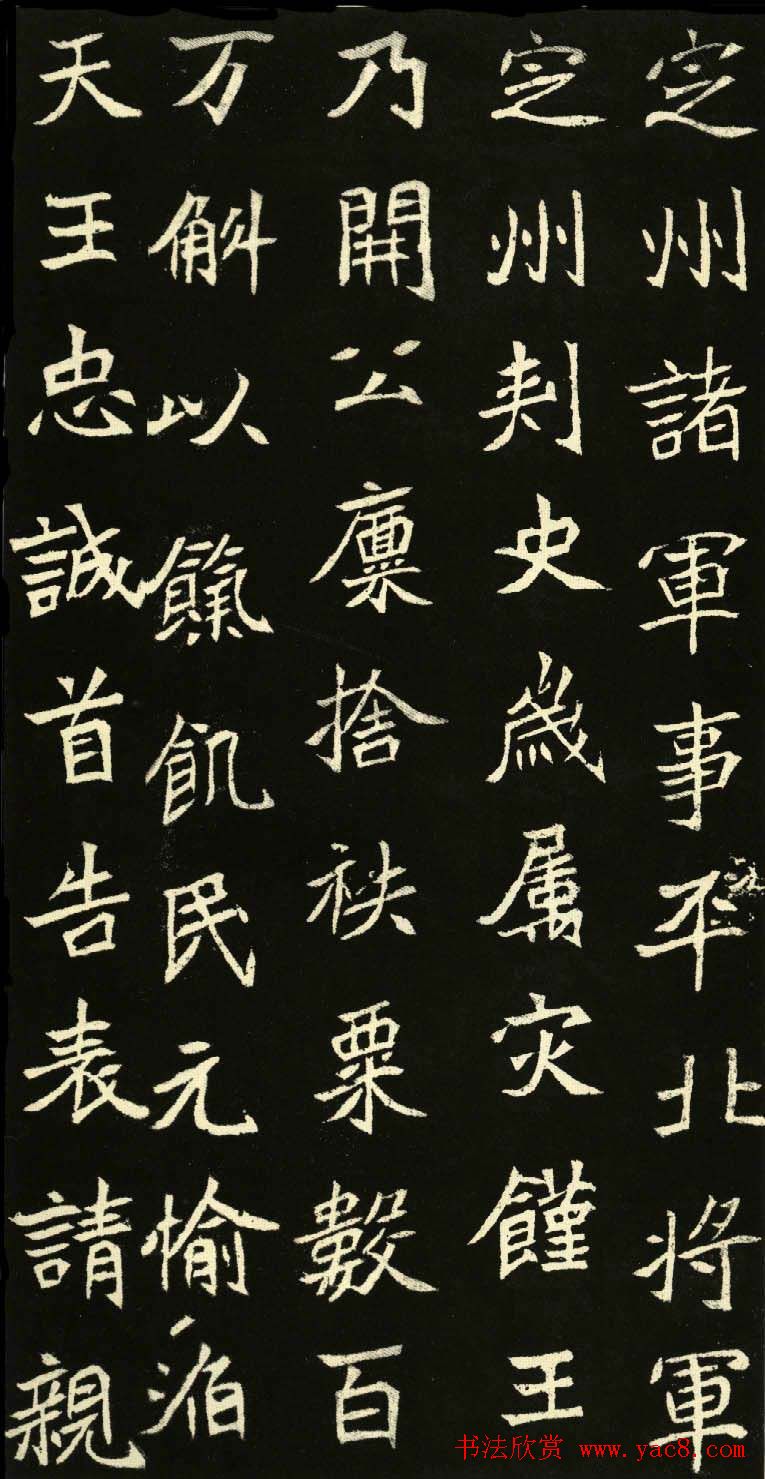 定州諸軍事平北将軍
定州刾史歲属灾饉王
乃開公廩捨袟粟數百
万斛以餼飢民元愉滔
天王忠誠首告表請親
书法欣赏 www.yac8.com